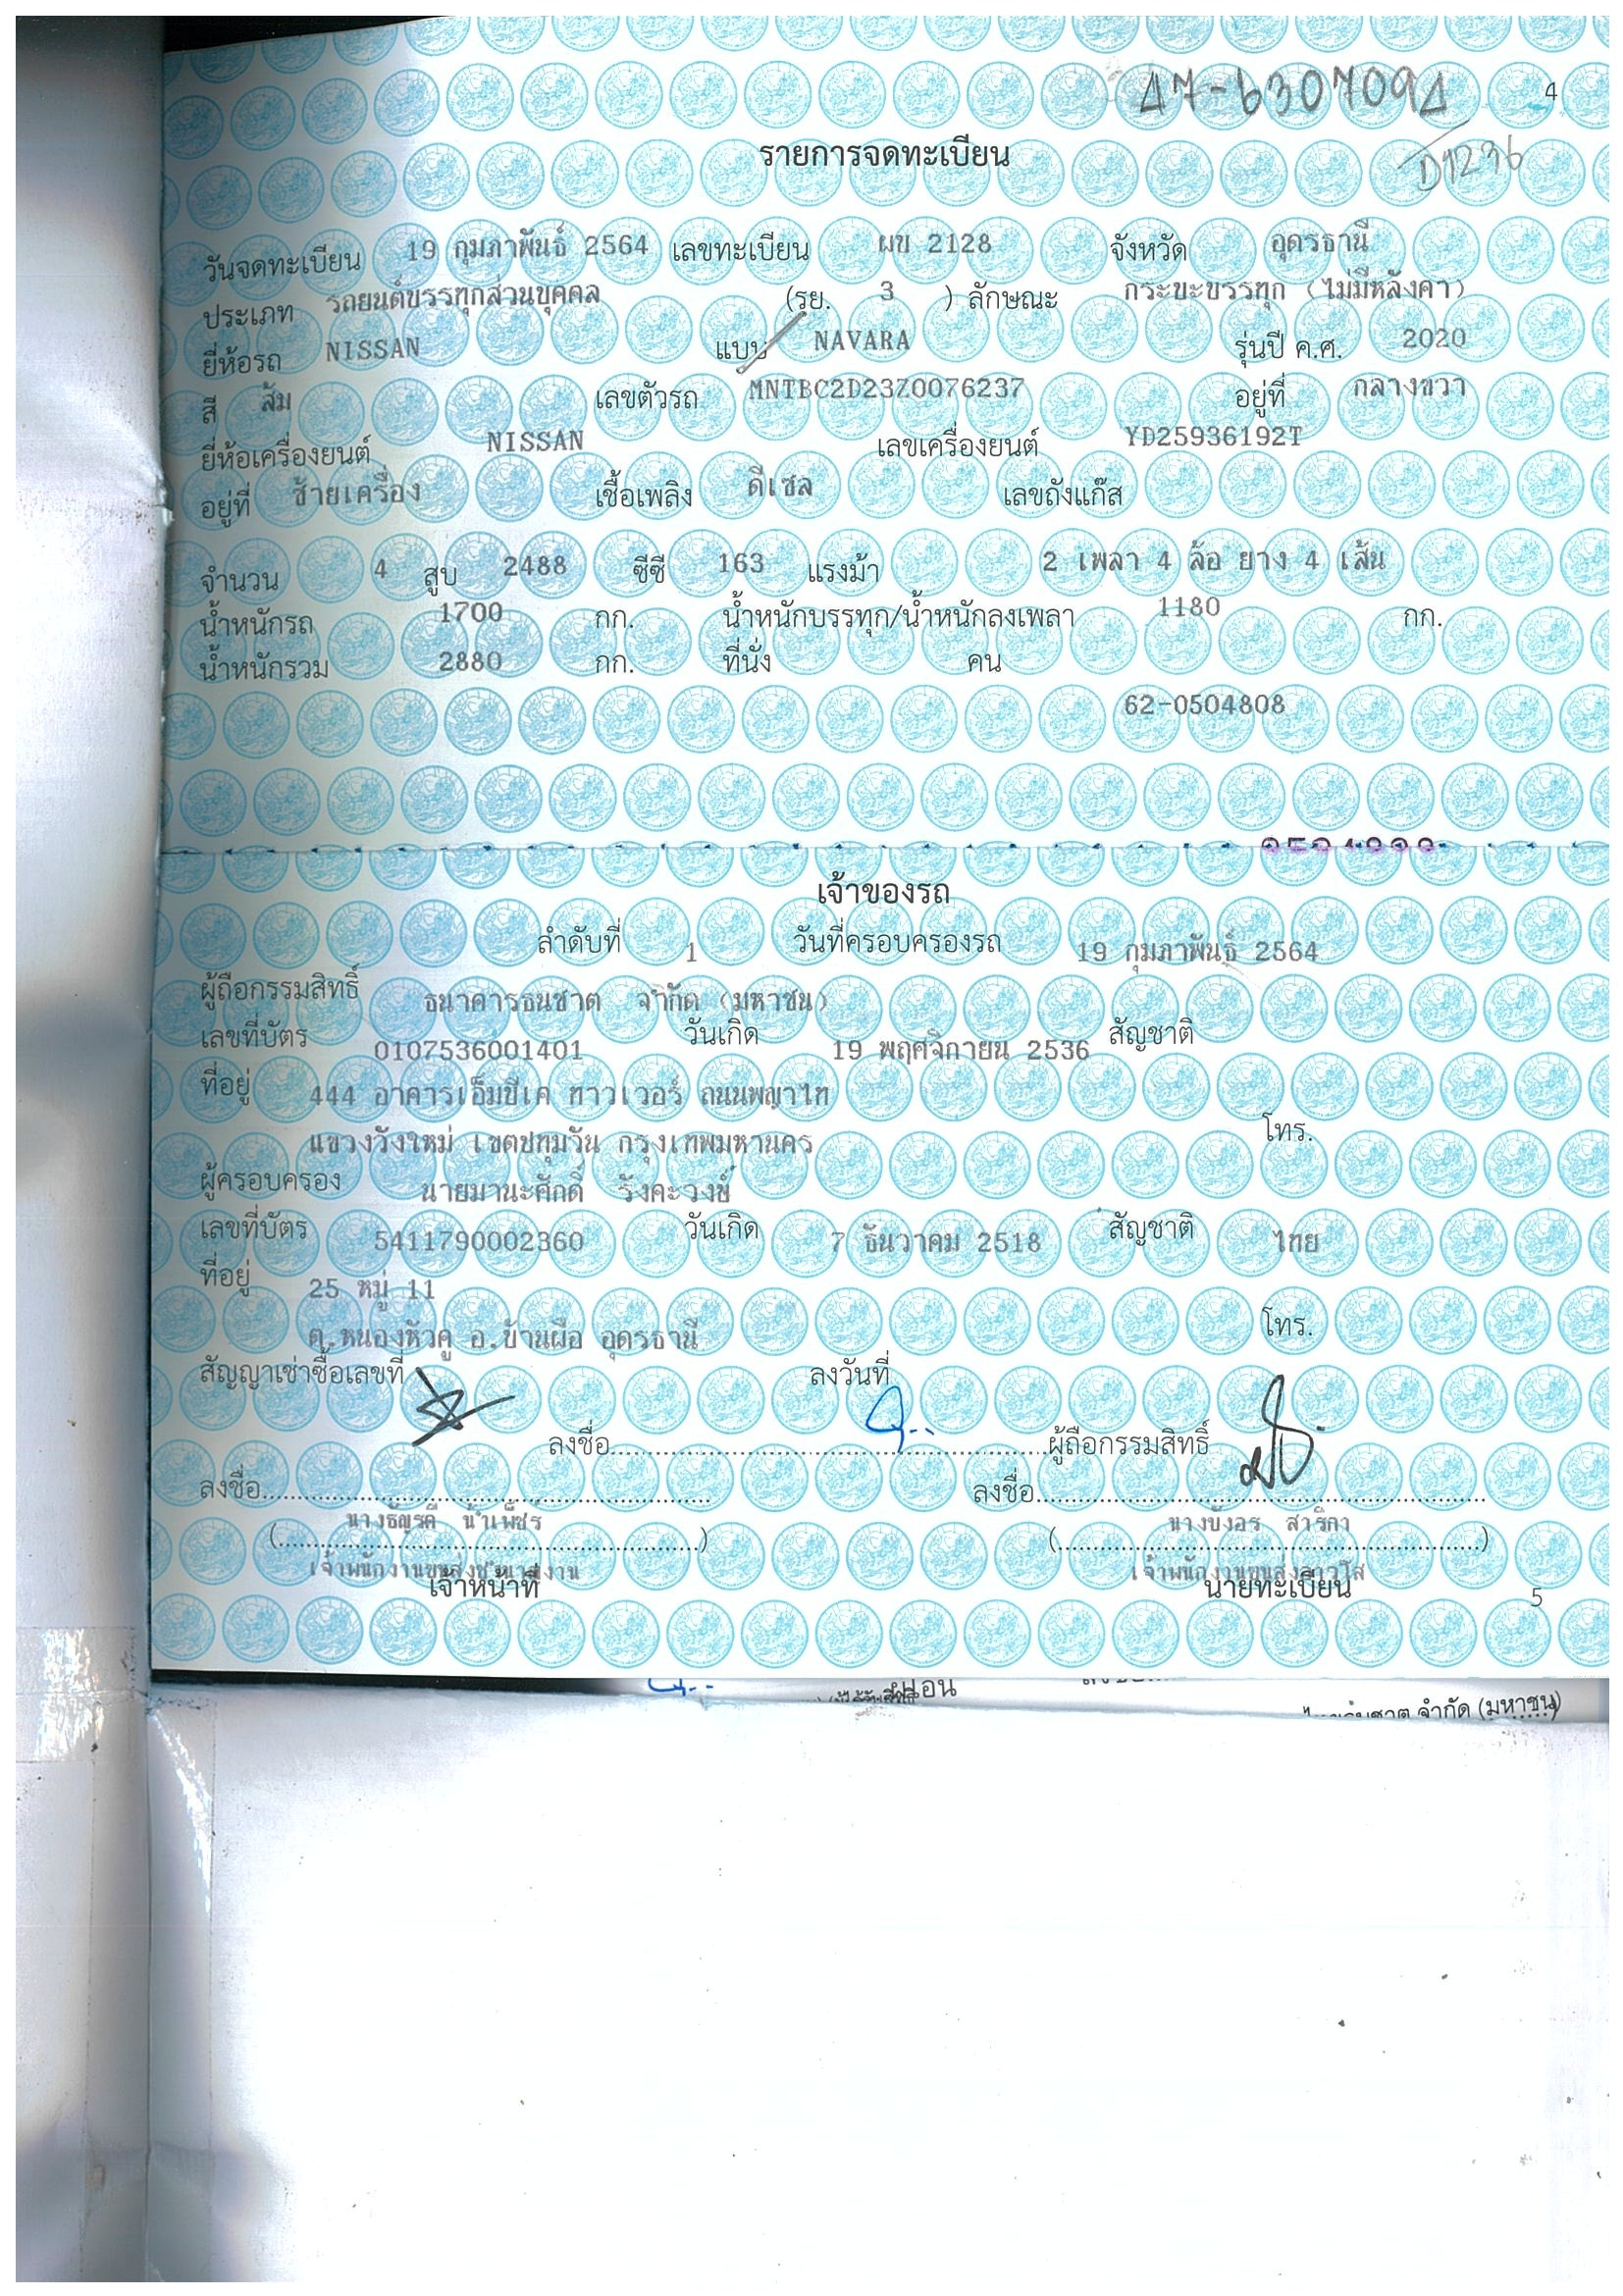 47-6307094 4
D1236
รายการจดทะเบียน
วันจดทะเบียน 19 กุมภาพันธ์ 2564 เลขทะเบียน ผข 2128 จังหวัด อุดรธานี
ประเภท รถยนต์บรรทุกส่วนบุคคล (รย. 3 ) ลักษณะ กระบะบรรทุก (ไม่มีหลังคา)
ยี่ห้อรถ NISSAN แบบ NAVARA รุ่นปี ค.ศ. 2020
สี ส้ม เลขตัวรถ MNTBC2D23Z0076237 อยู่ที่ กลางขวา
ยี่ห้อเครื่องยนต์ NISSAN เลขเครื่องยนต์ YD25936192T
อยู่ที่ ซ้ายเครื่อง เชื้อเพลิง ดีเซล เลขถังแก๊ส
จำนวน 4 สูบ 2488 ซีซี 163 แรงม้า 2 เพลา 4 ล้อ ยาง 4 เส้น
น้ำหนักรถ 1700 กก. น้ำหนักบรรทุก/น้ำหนักลงเพลา 1180 กก.
น้ำหนักรวม 2880 กก. ที่นั่ง คน
62-0504808
เจ้าของรถ
ลำดับที่ 1 วันที่ครอบครองรถ 19 กุมภาพันธ์ 2564
ผู้ถือกรรมสิทธิ์ ธนาคารธนชาต จำกัด (มหาชน)
เลขที่บัตร 0107536001401 วันเกิด 19 พฤศจิกายน 2536 สัญชาติ
ที่อยู่ 444 อาคารเอ็มบีเค ทาวเวอร์ ถนนพญาไท
แขวงวังใหม่ เขตปทุมวัน กรุงเทพมหานคร โทร.
ผู้ครอบครอง นายมานะศักดิ์ รังคะวงษ์
เลขที่บัตร 5411790002360 วันเกิด 7 ธันวาคม 2518 สัญชาติ ไทย
ที่อยู่ 25 หมู่ 11
ต.หนองหัวคู อ.บ้านผือ อุดรธานี โทร.
สัญญาเช่าซื้อเลขที่ ลงวันที่
ลงชื่อ ผู้ถือกรรมสิทธิ์
ลงชื่อ ลงชื่อ
(นางธัญรดี น้ำเพ็ชร) (นางบังอร สาริกา)
เจ้าพนักงานขนส่งชำนาญงาน เจ้าพนักงานขนส่งอาวุโส
เจ้าหน้าที่ นายทะเบียน 5
จำกัด (มหาชน)